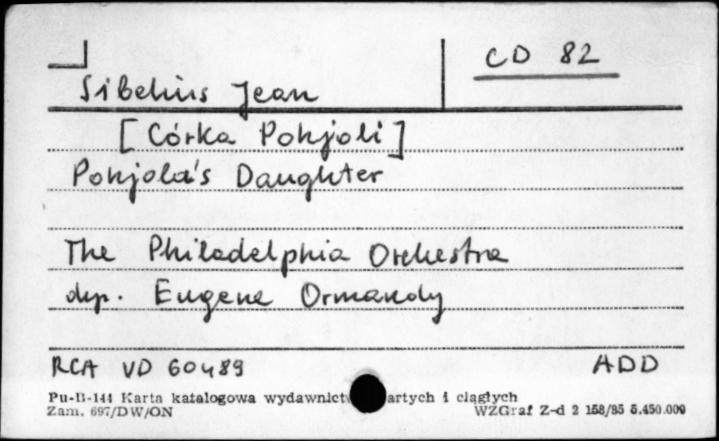 CD 82
Sibelius Jean
[Córka Pohjoli]
Pohjola's Daughter
The Philadelphia Orchestra
dyr. Eugene Ormandy
RCA VD 60489 ADD
Pu-B-144 Karta katalogowa wydawnict artych i ciągłych
Zam. 697/DW/ON WZGraf Z-d 2 158/85 5.450.000